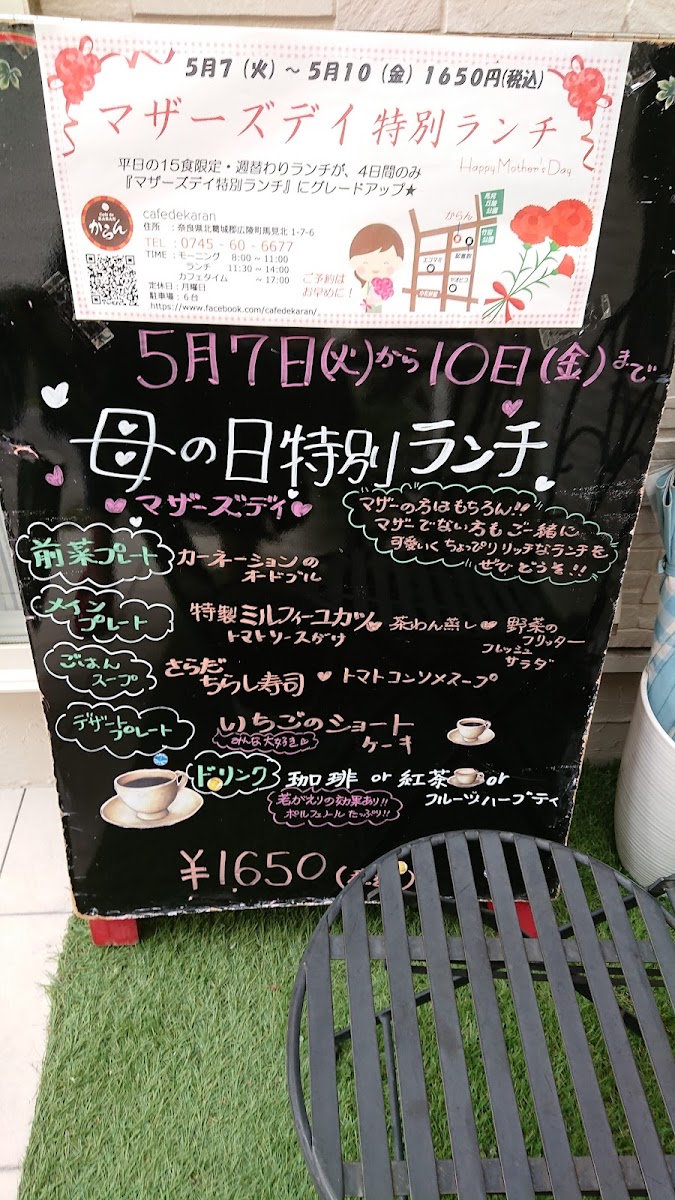 5月7(火)～5月10(金)1650円(税込)
マザーズデイ特別ランチ
Happy Mother's Day
平日の15食限定・週替わりランチが、4日間のみ
『マザーズデイ特別ランチ』にグレードアップ★
Cafe de KARAN
からん
cafedekaran
住所 :奈良県北葛城郡広陵町馬見北 1-7-6
TEL :0745-60-6677
TIME:モーニング 8:00～11:00
ランチ 11:30～14:00
カフェタイム ～17:00
定休日:月曜日
駐車場:6台
https://www.facebook.com/cafedekaran/
ご予約は
お早めに!
からん
エコマミ
5月7日(火)から10日(金)まで
母の日特別ランチ
マザーズディ
マザーの方はもちろん!!
マザーでない方もご一緒に
可愛いくちょっぴりリッチなランチを
ぜひどうぞ!!
前菜プレート
カーネーションの
オードブル
メイン
プレート
特製ミルフィーユカツ
トマトソースがけ
茶わん蒸し
野菜の
フリッター
フレッシュ
サラダ
ごはん
スープ
さらだ
ちらし寿司
トマトコンソメスープ
デザート
プレート
いちごのショート
ケーキ
みんな大好き
ドリンク
珈琲 or 紅茶 or
フルーツハーブティ
若がえりの効果あり!!
ポルフェノールたっぷり!!
¥1,650